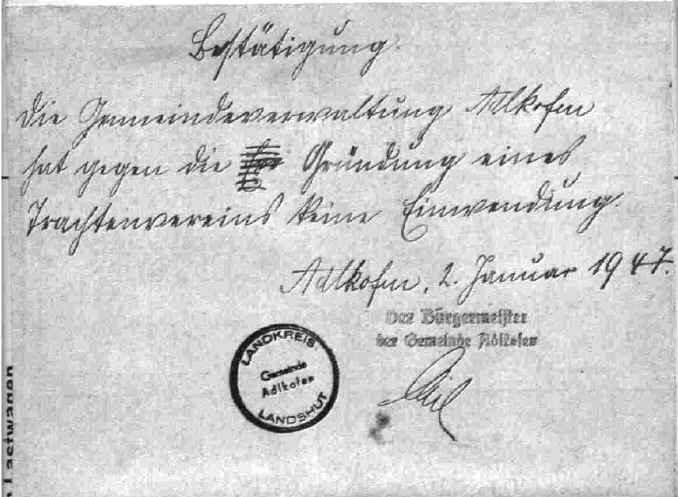 Bestätigung.
Die Gemeindeverwaltung Adlkofen
hat gegen die Gründung eines
Trachtenvereins keine Einwendung.
Adlkofen, 2. Januar 1947.
Der Bürgermeister
der Gemeinde Adlkofen
LANDKREIS
Gemeinde
Adlkofen
LANDSHUT
Lastwagen